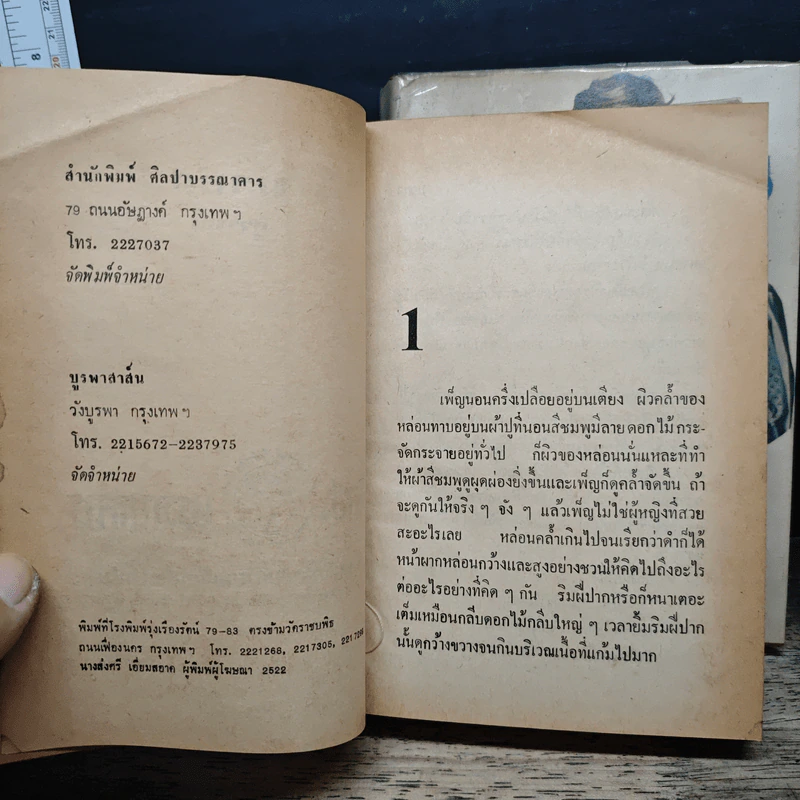 สำนักพิมพ์ ศิลปาบรรณาคาร
79 ถนนอัษฎางค์ กรุงเทพฯ
โทร. 2227037
จัดพิมพ์จำหน่าย
บูรพาสาส์น
วังบูรพา กรุงเทพฯ
โทร. 2215672-2237975
จัดจำหน่าย
พิมพ์ที่โรงพิมพ์รุ่งเรืองรัตน์ 79-83 ตรงข้ามวัดราชบพิธ
ถนนเฟื่องนคร กรุงเทพฯ โทร. 2221268, 2217305,
นางสงศรี เอี่ยมสอาด ผู้พิมพ์ผู้โฆษณา 2522
1
เพ็ญนอนครึ่งเปลือยอยู่บนเตียง ผิวคล้ำของ
หล่อนทาบอยู่บนผ้าปูที่นอนสีชมพูมีลายดอกไม้กระ-
จัดกระจายอยู่ทั่วไป ก็ผิวของหล่อนนั่นแหละที่ทำ
ให้ผ้าสีชมพูดูผุดผ่องยิ่งขึ้นและเพ็ญก็ดูคล้ำจัดขึ้น ถ้า
จะดูกันให้จริง ๆ จัง ๆ แล้วเพ็ญไม่ใช่ผู้หญิงที่สวย
สะอะไรเลย หล่อนคล้ำเกินไปจนเรียกว่าดำก็ได้
หน้าผากหล่อนกว้างและสูงอย่างชวนให้คิดไปถึงอะไร
ต่ออะไรอย่างที่คิด ๆ กัน ริมฝีปากหรือก็หนาเตอะ
เต็มเหมือนกลีบดอกไม้กลีบใหญ่ ๆ เวลายิ้มริมฝีปาก
นั้นดูกว้างขวางจนกินบริเวณเนื้อที่แก้มไปมาก
8
22
21
20